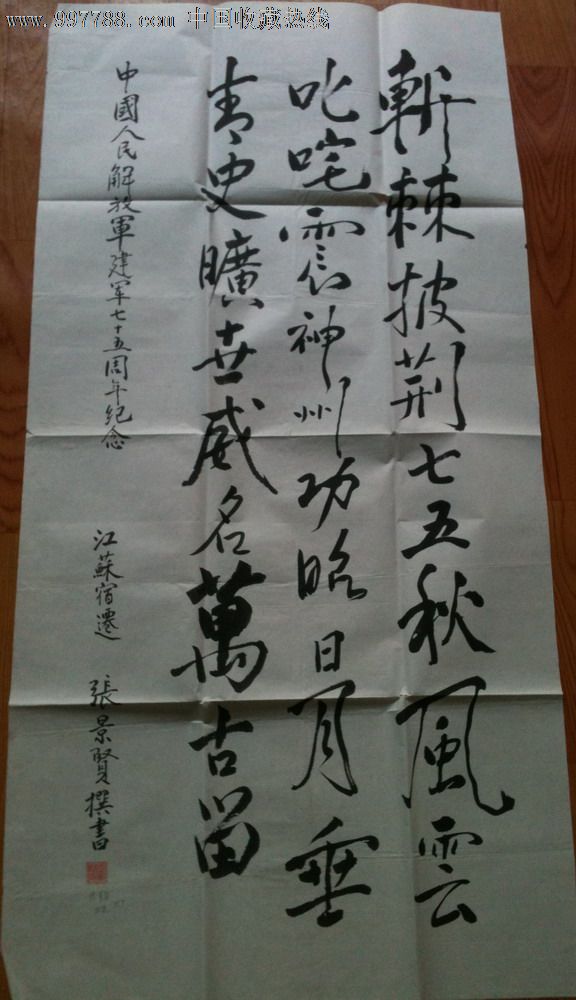 www.997788.com 中国收藏热线
斬棘披荆七五秋風雲
叱咤震神州功昭日月垂
青史曠世威名萬古留
中國人民解放軍建军七十五周年纪念 江蘇宿遷 張景賢撰書